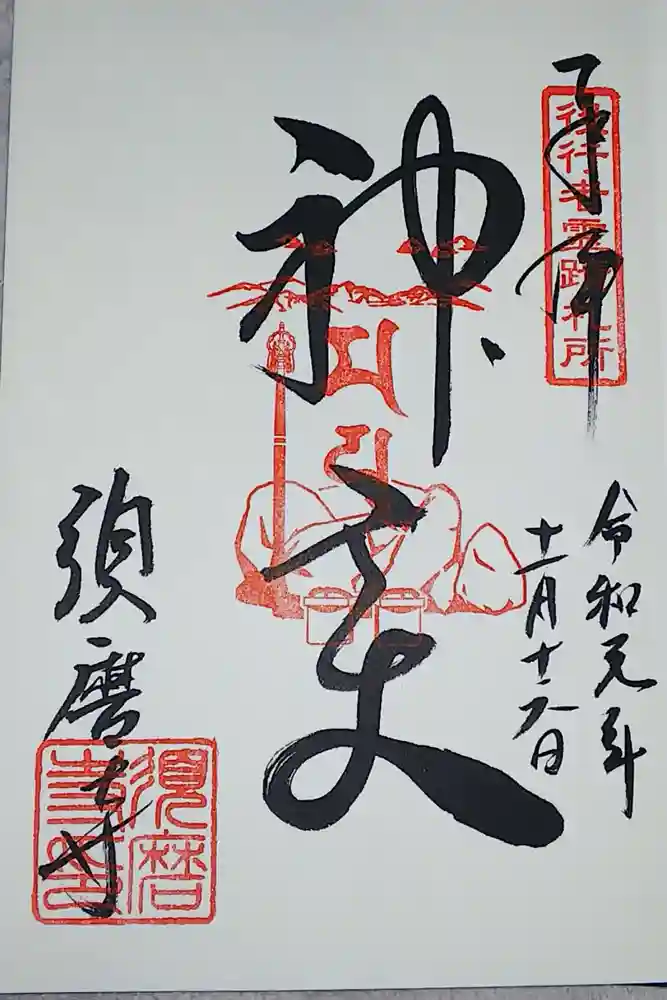 奉拝
役行者霊蹟札所
令和元年
十一月十六日
神変
須磨寺
須磨
寺印